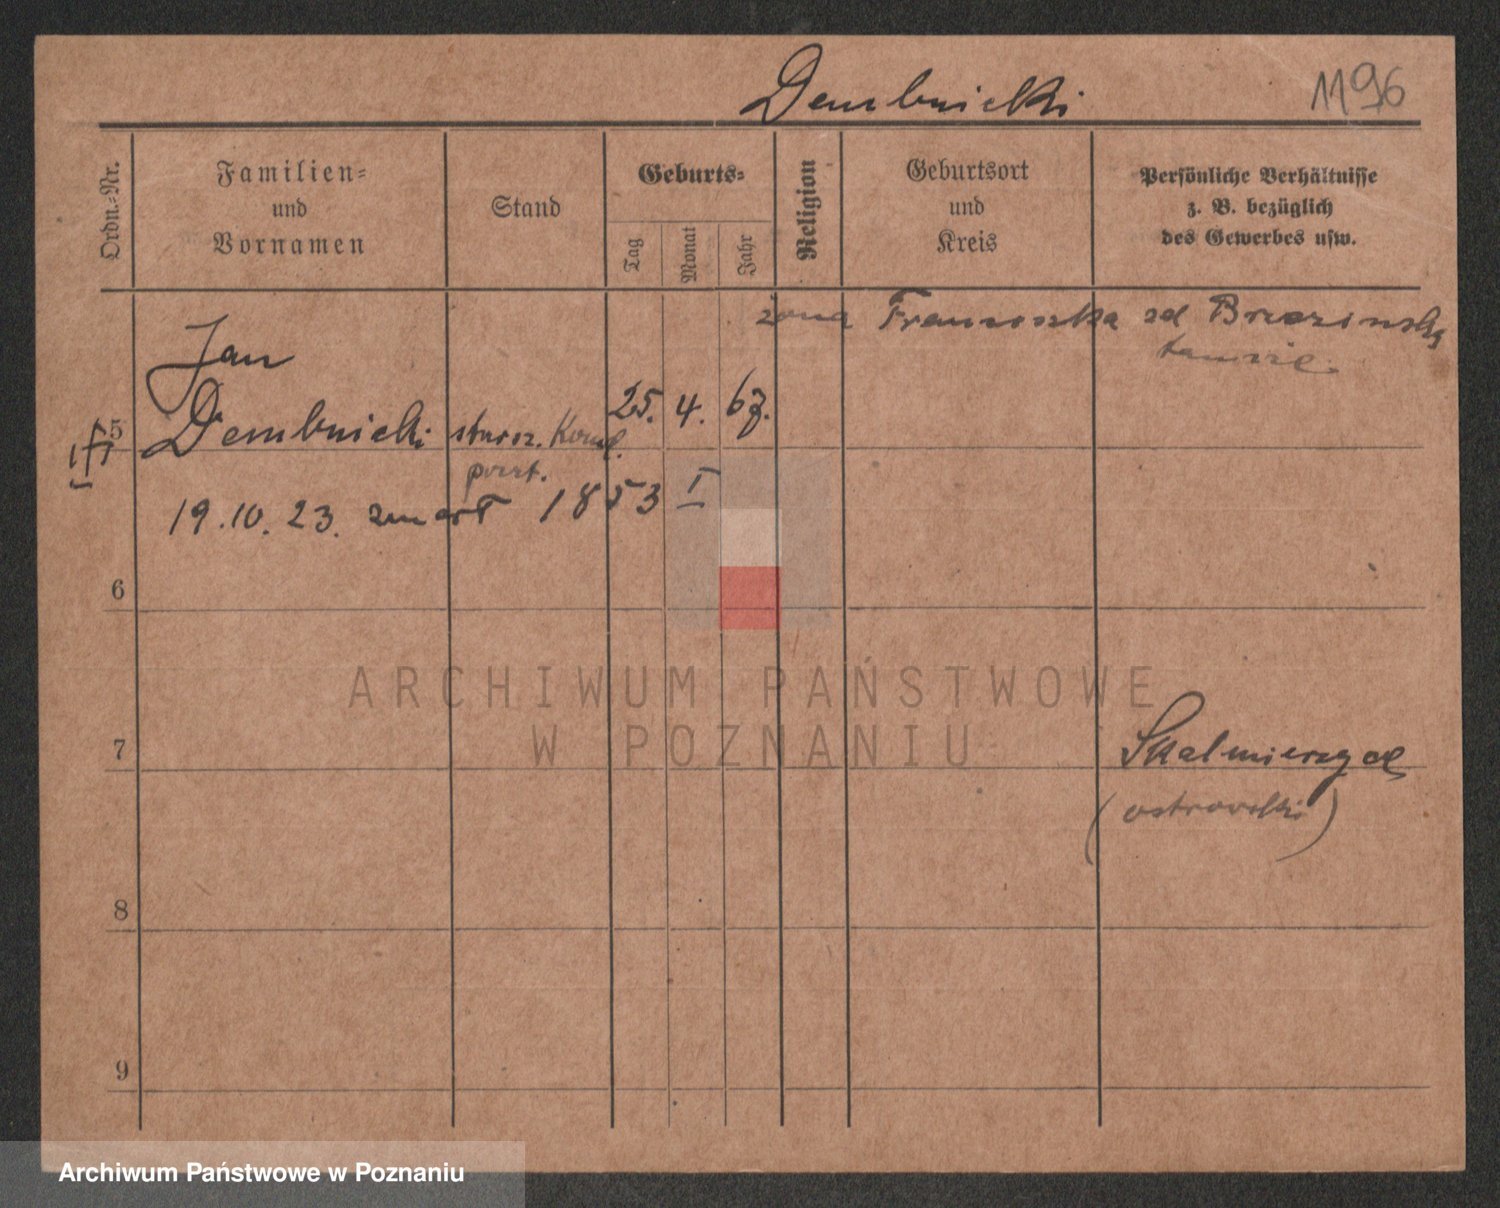 Dembnicki
1196
Ordn.-Nr.
Familien=
und
Vornamen
Stand
Geburts=
Tag
Monat
Jahr
Religion
Geburtsort
und
Kreis
Persönliche Verhältnisse
z. B. bezüglich
des Gewerbes usw.
żona Franciszka zd Brzezinska
tamże
Jan
5 Dembnicki starsz. 25. 4. 67.
poszt.
19.10.23. zmarł 1853 I
6
7
Skalmierzyce
(ostrowski)
8
9
ARCHIWUM PAŃSTWOWE
W POZNANIU
Archiwum Państwowe w Poznaniu